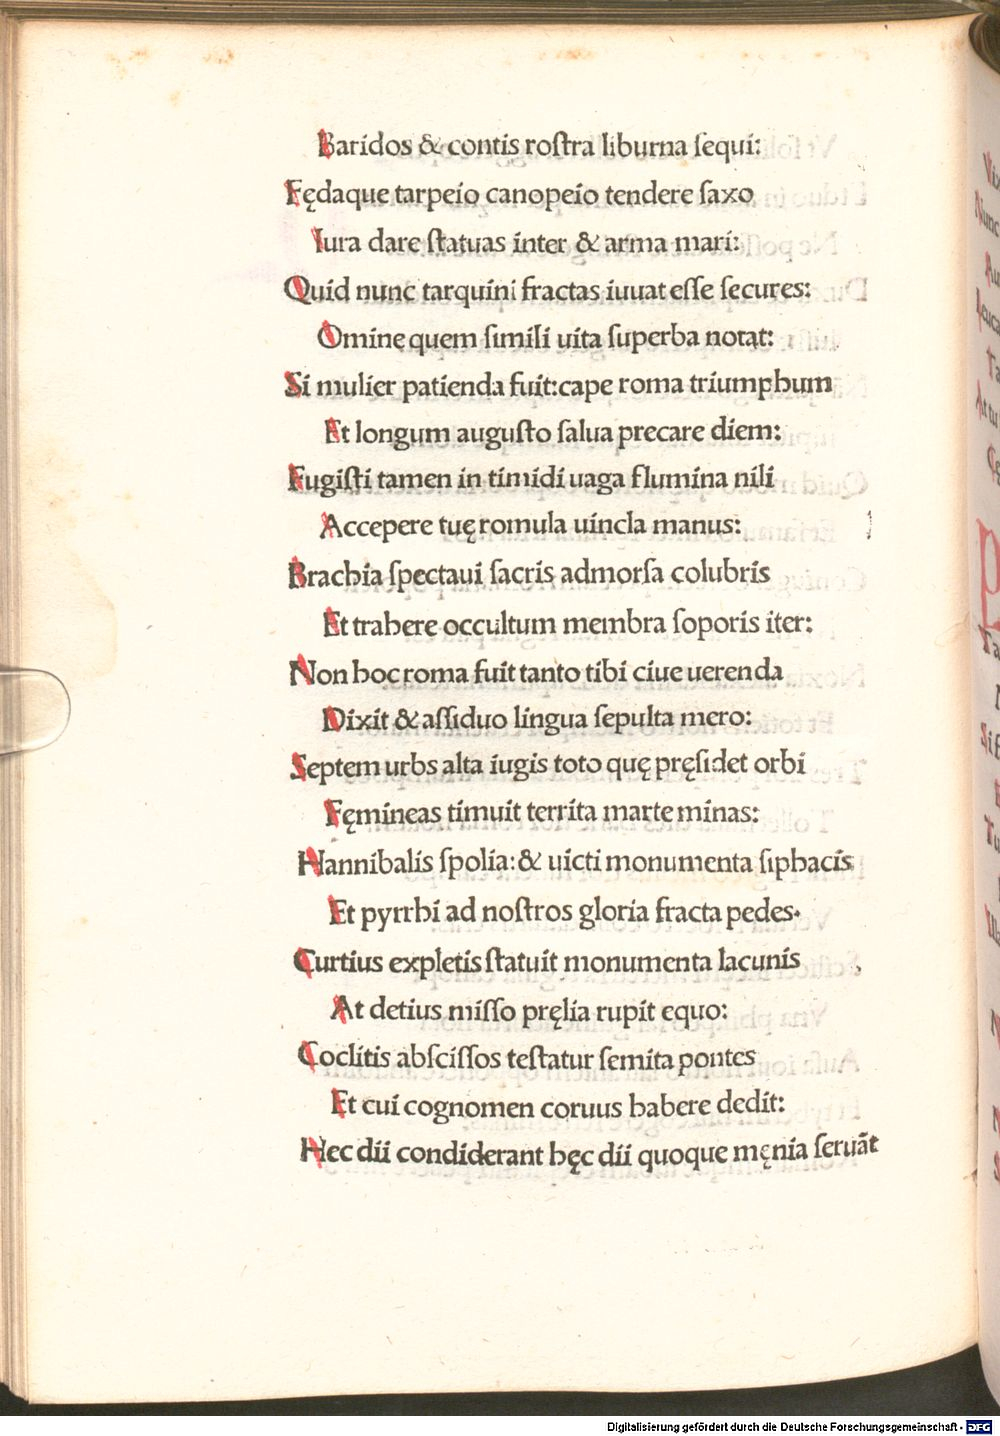 Baridos & contis roſtra liburna ſequi:
Fędaque tarpeio canopeio tendere ſaxo
Iura dare ſtatuas inter & arma mari:
Quid nunc tarquini fractas iuuat eſſe ſecures:
Omine quem ſimili uita ſuperba notat:
Si mulier patienda fuit:cape roma triumphum
Et longum auguſto ſalua precare diem:
Fugiſti tamen in timidi uaga flumina nili
Accepere tuę romula uincla manus:
Brachia ſpectaui ſacris admorſa colubris
Et trahere occultum membra ſoporis iter:
Non hoc roma fuit tanto tibi ciue uerenda
Dixit & aſſiduo lingua ſepulta mero:
Septem urbs alta iugis toto quę pręſidet orbi
Fęmineas timuit territa marte minas:
Hannibalis ſpolia:& uicti monumenta ſiphacis
Et pyrrhi ad noſtros gloria fracta pedes.
Curtius expletis ſtatuit monumenta lacunis
At detius miſſo pręlia rupit equo:
Coclitis abſciſſos teſtatur ſemita pontes
Et cui cognomen coruus habere dedit:
Hec dii condiderant hęc dii quoque męnia ſeruāt
Digitalisierung gefördert durch die Deutsche Forschungsgemeinschaft - DFG